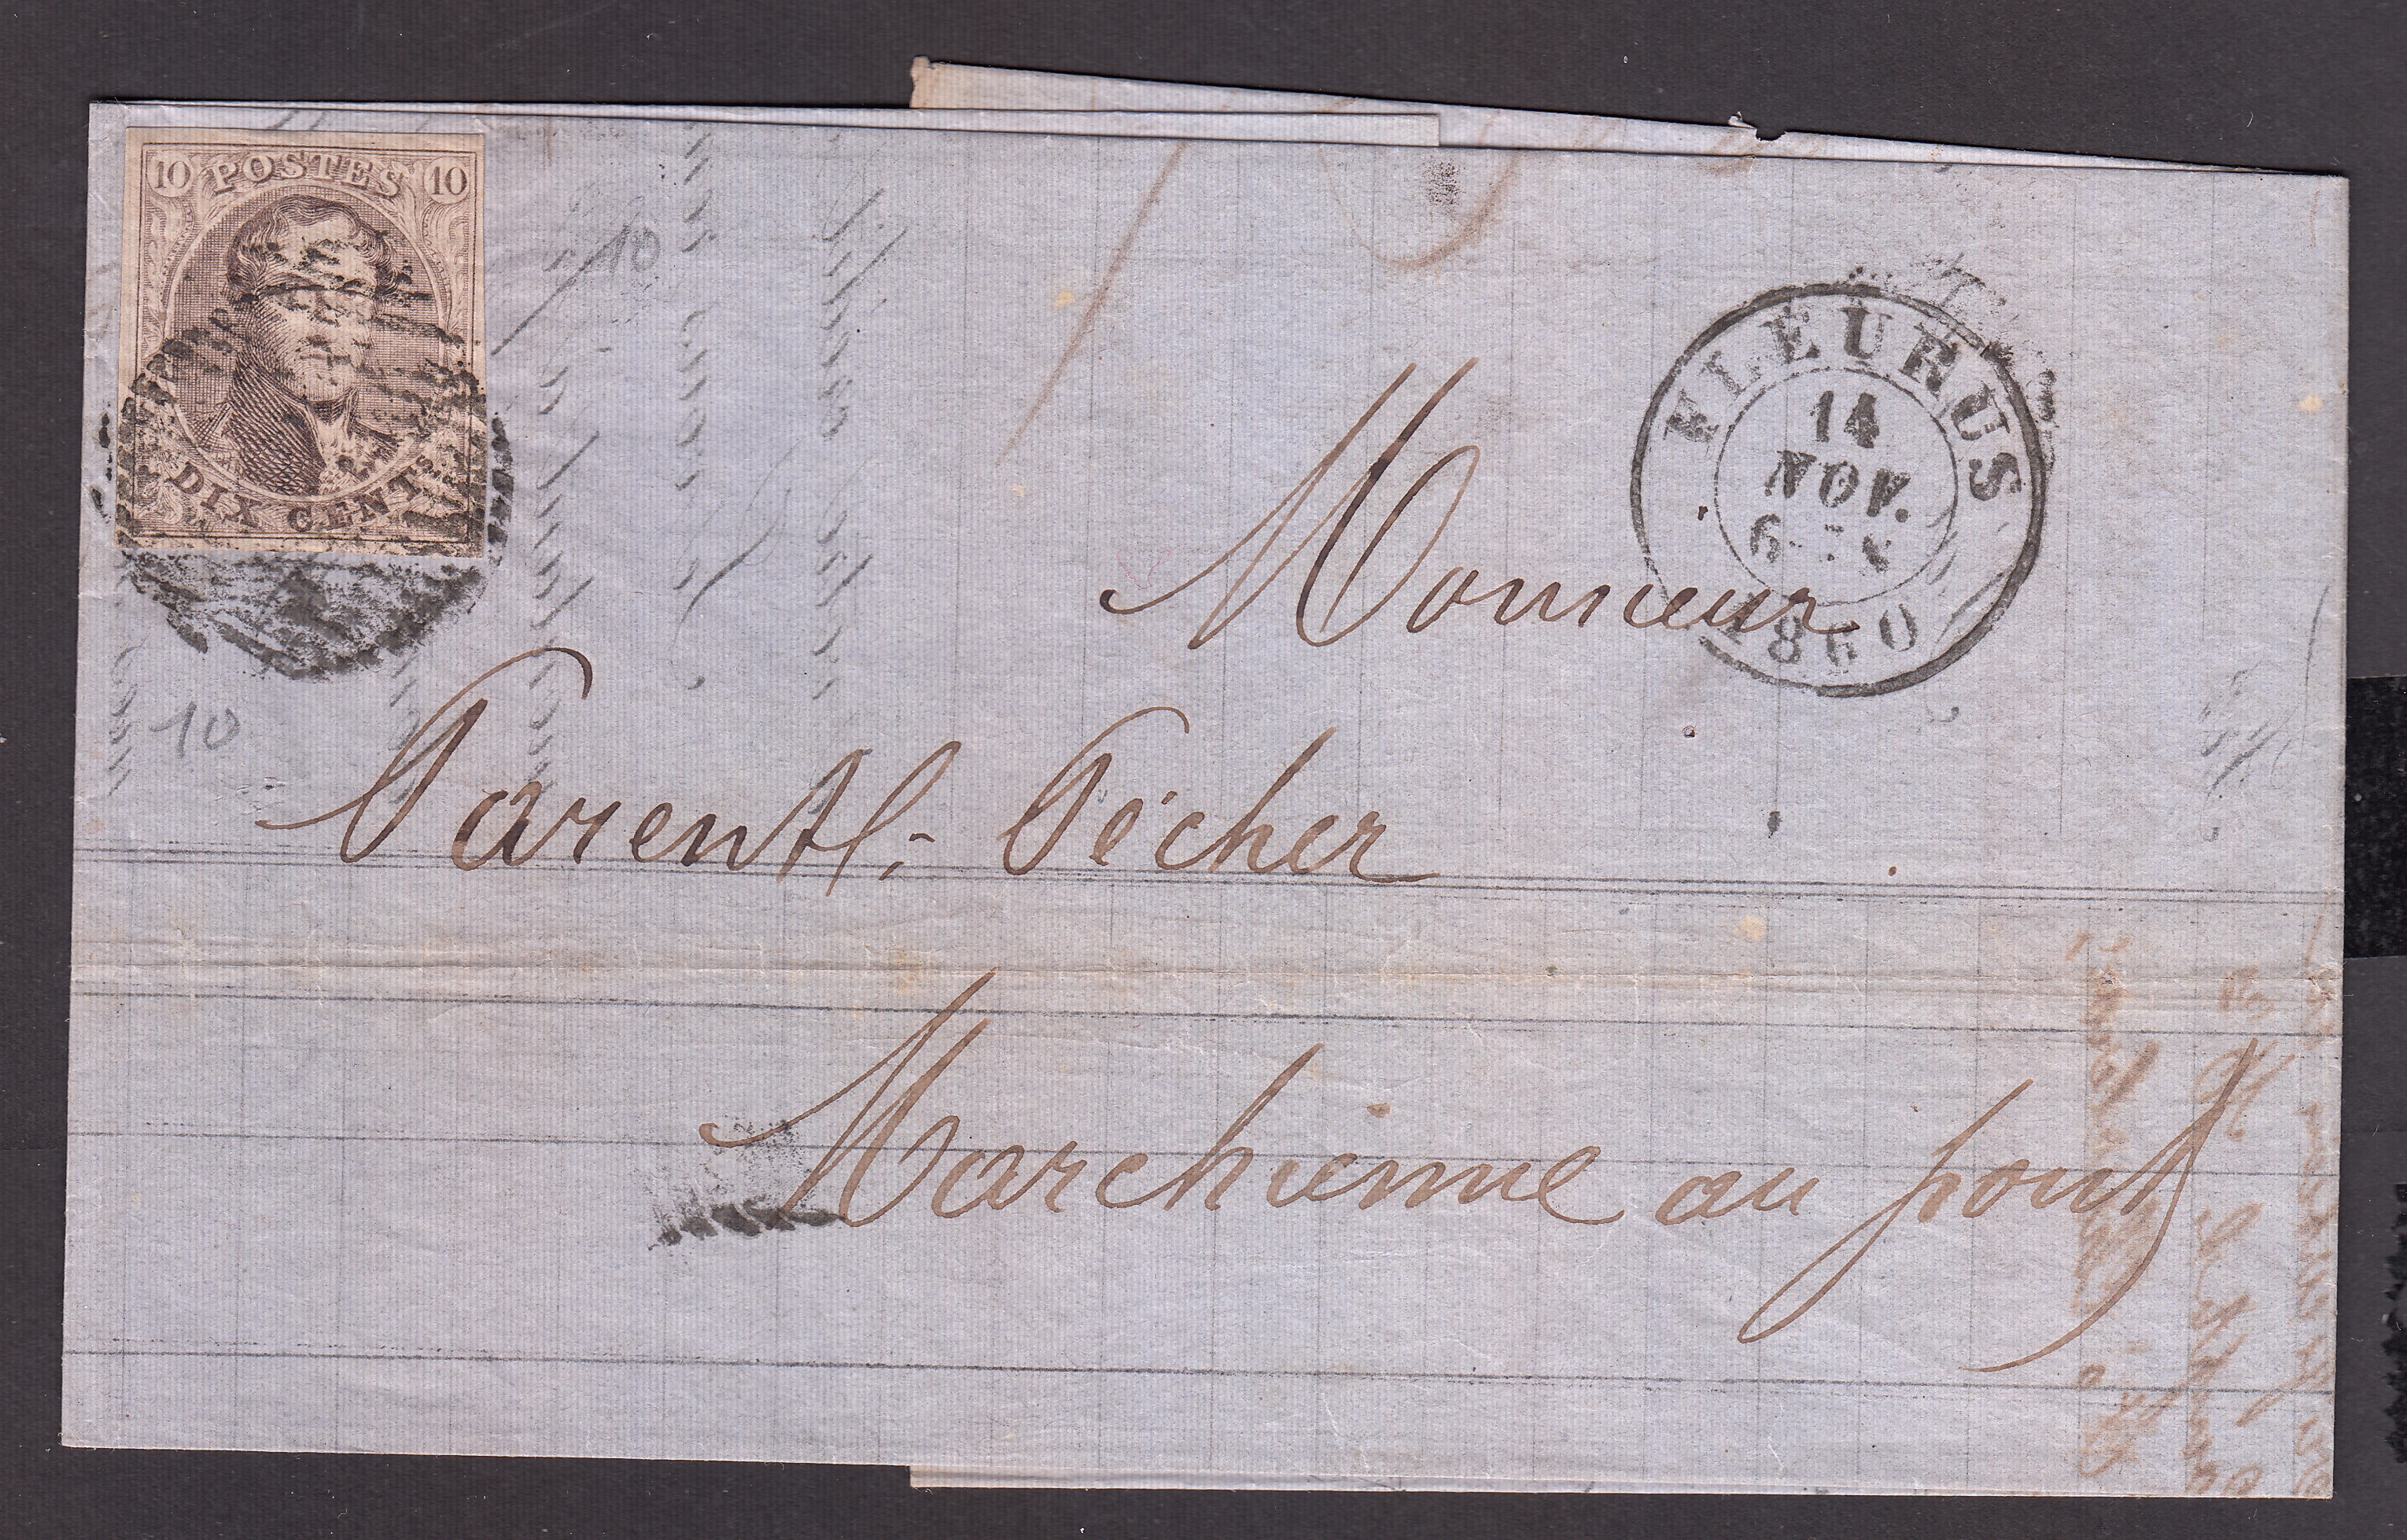 10 POSTES 10
DIX CENTS
10
10
FLEURUS
14
NOV.
1860
Monsieur
Parent-Pècher
Marchienne au pont